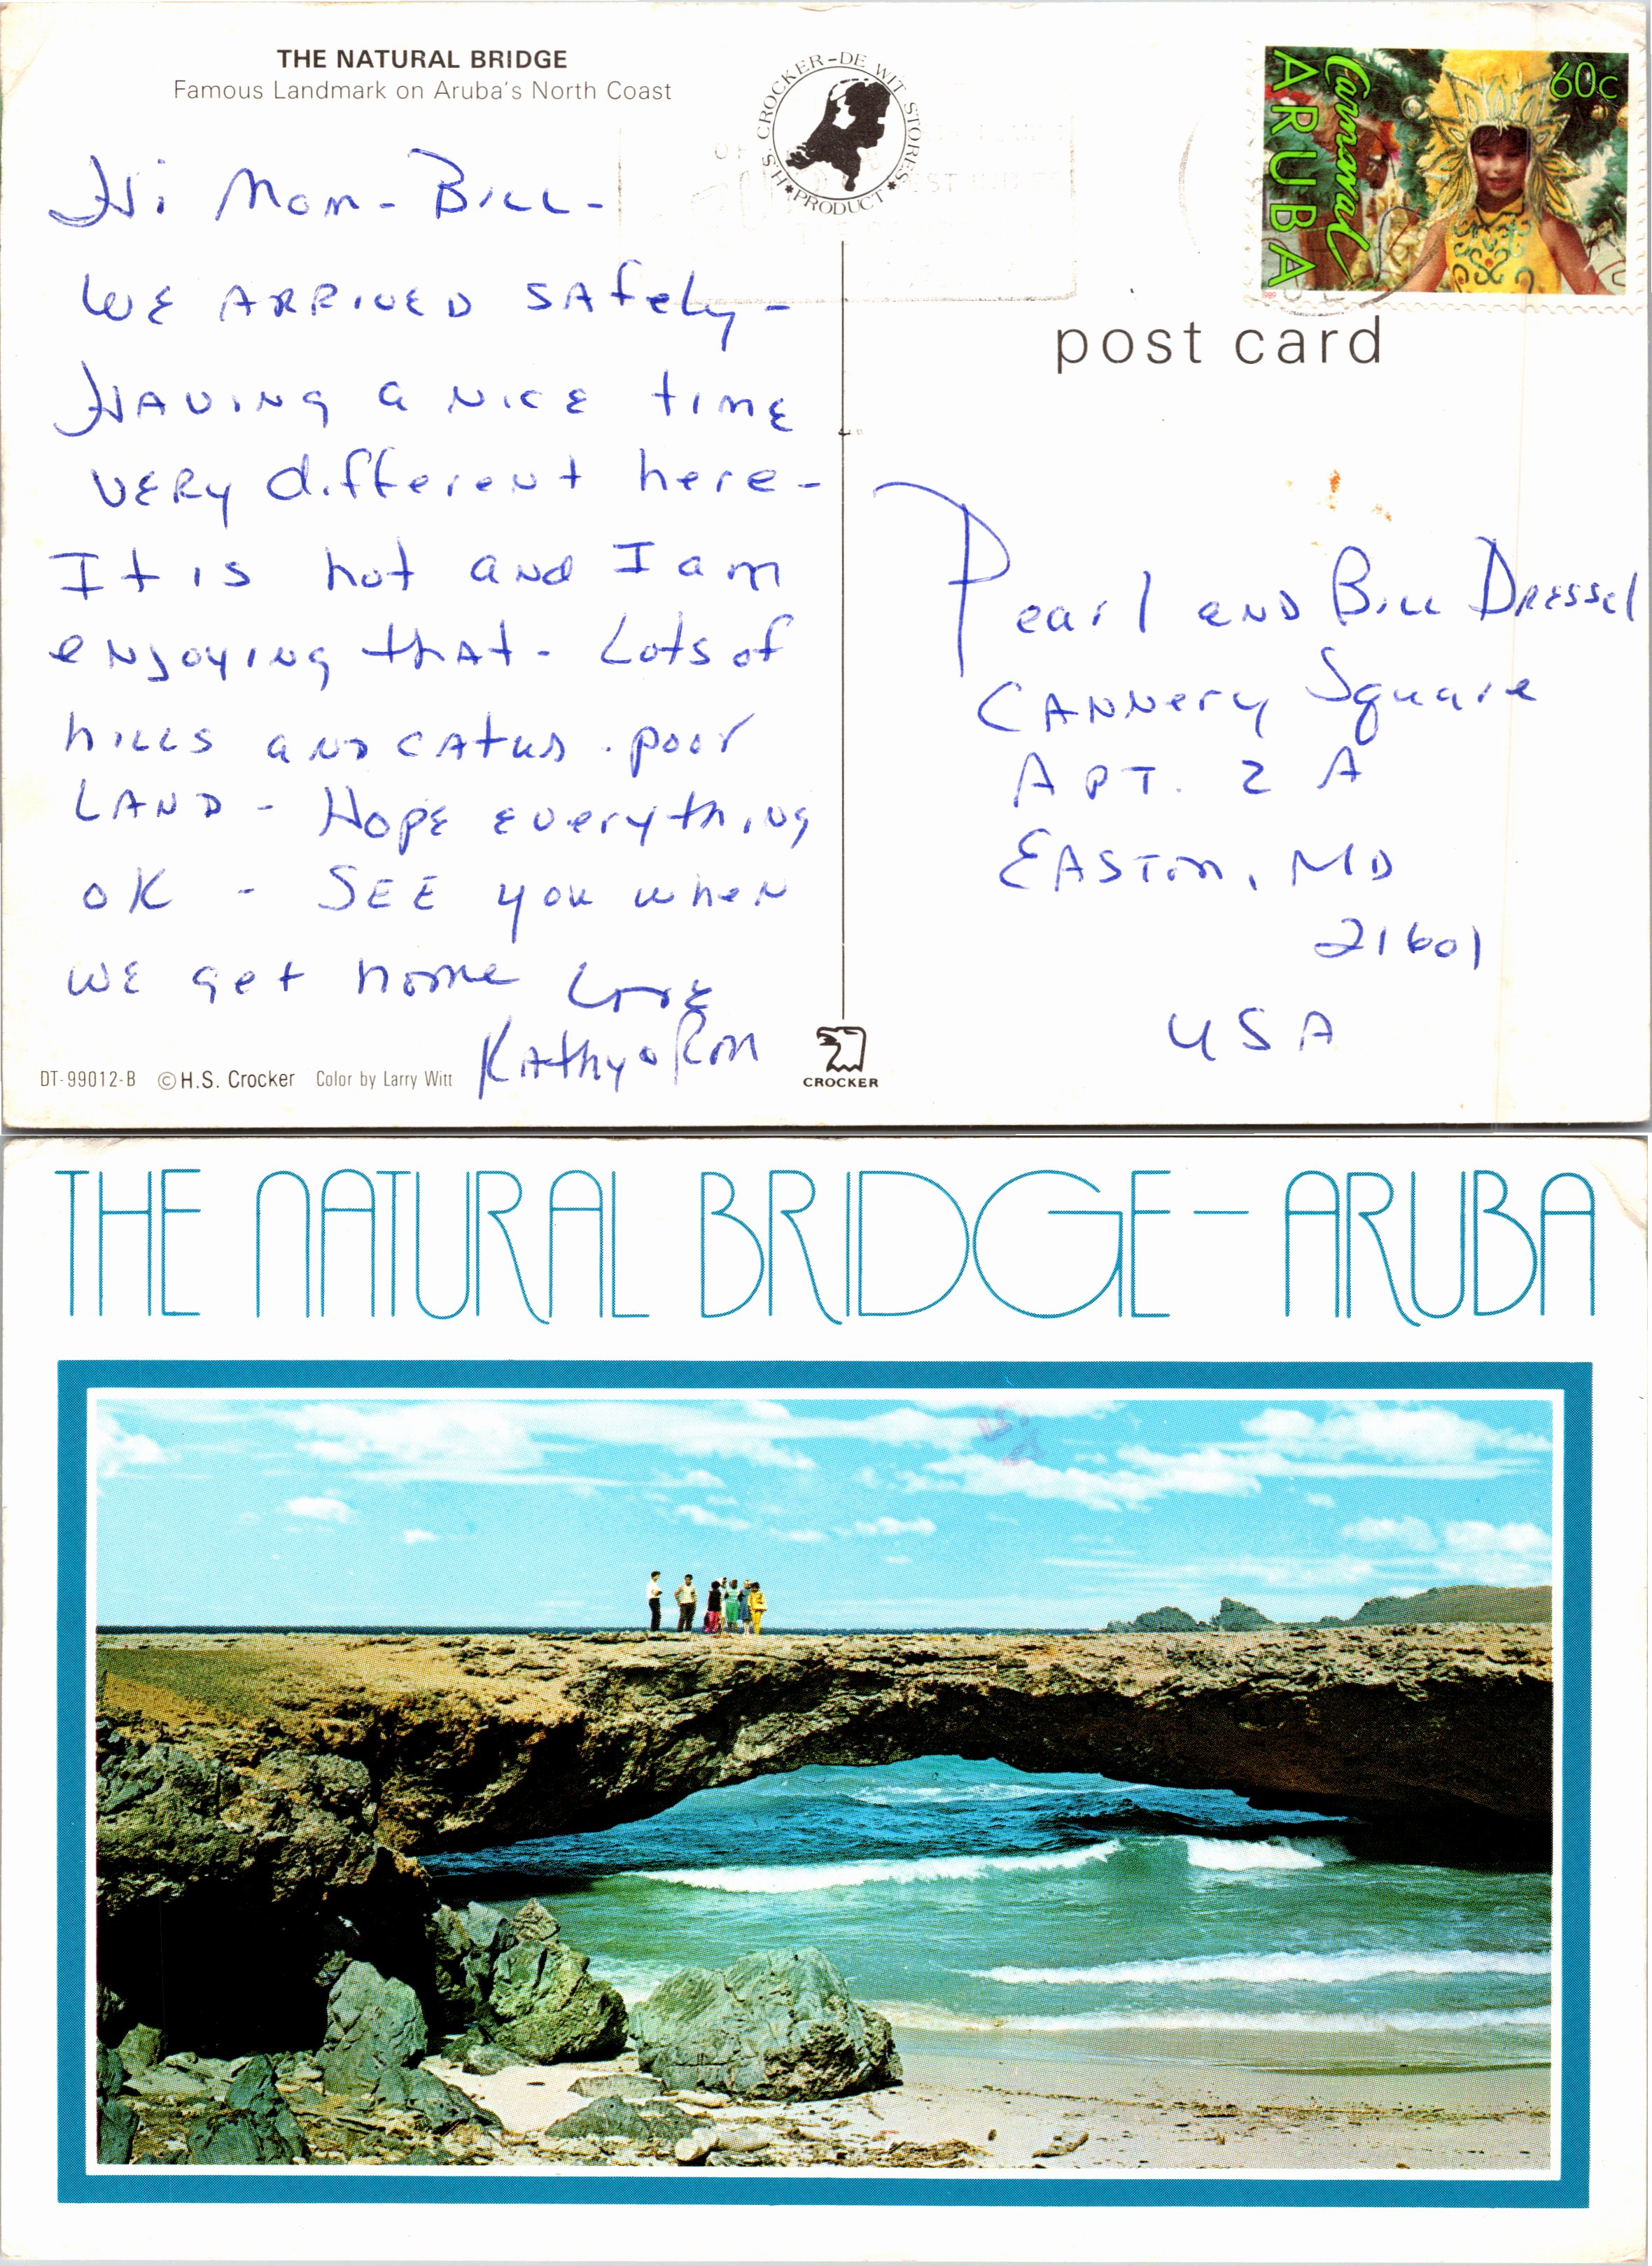 THE NATURAL BRIDGE
Famous Landmark on Aruba's North Coast
H.S. CROCKER-DE WIT STORES
PRODUCT
60c
Carnaval
ARUBA
1989
post card
Hi Mom - Bill -
WE ARRIVED SAfely -
HAVING a NICE time
VERy different here -
It is hot and I am
eNJoyiNg thAt - Lots of
hills aND CAtus. poor
LAND - HopE everythiNg
OK - SEE you wheN
WE get home Love
KAthy & Ron
Pearl AND Bill DRESSel
CANNery Square
APT. 2 A
EASTon, MD
21601
USA
DT-99012-B © H.S. Crocker Color by Larry Witt
CROCKER
THE NATURAL BRIDGE - ARUBA